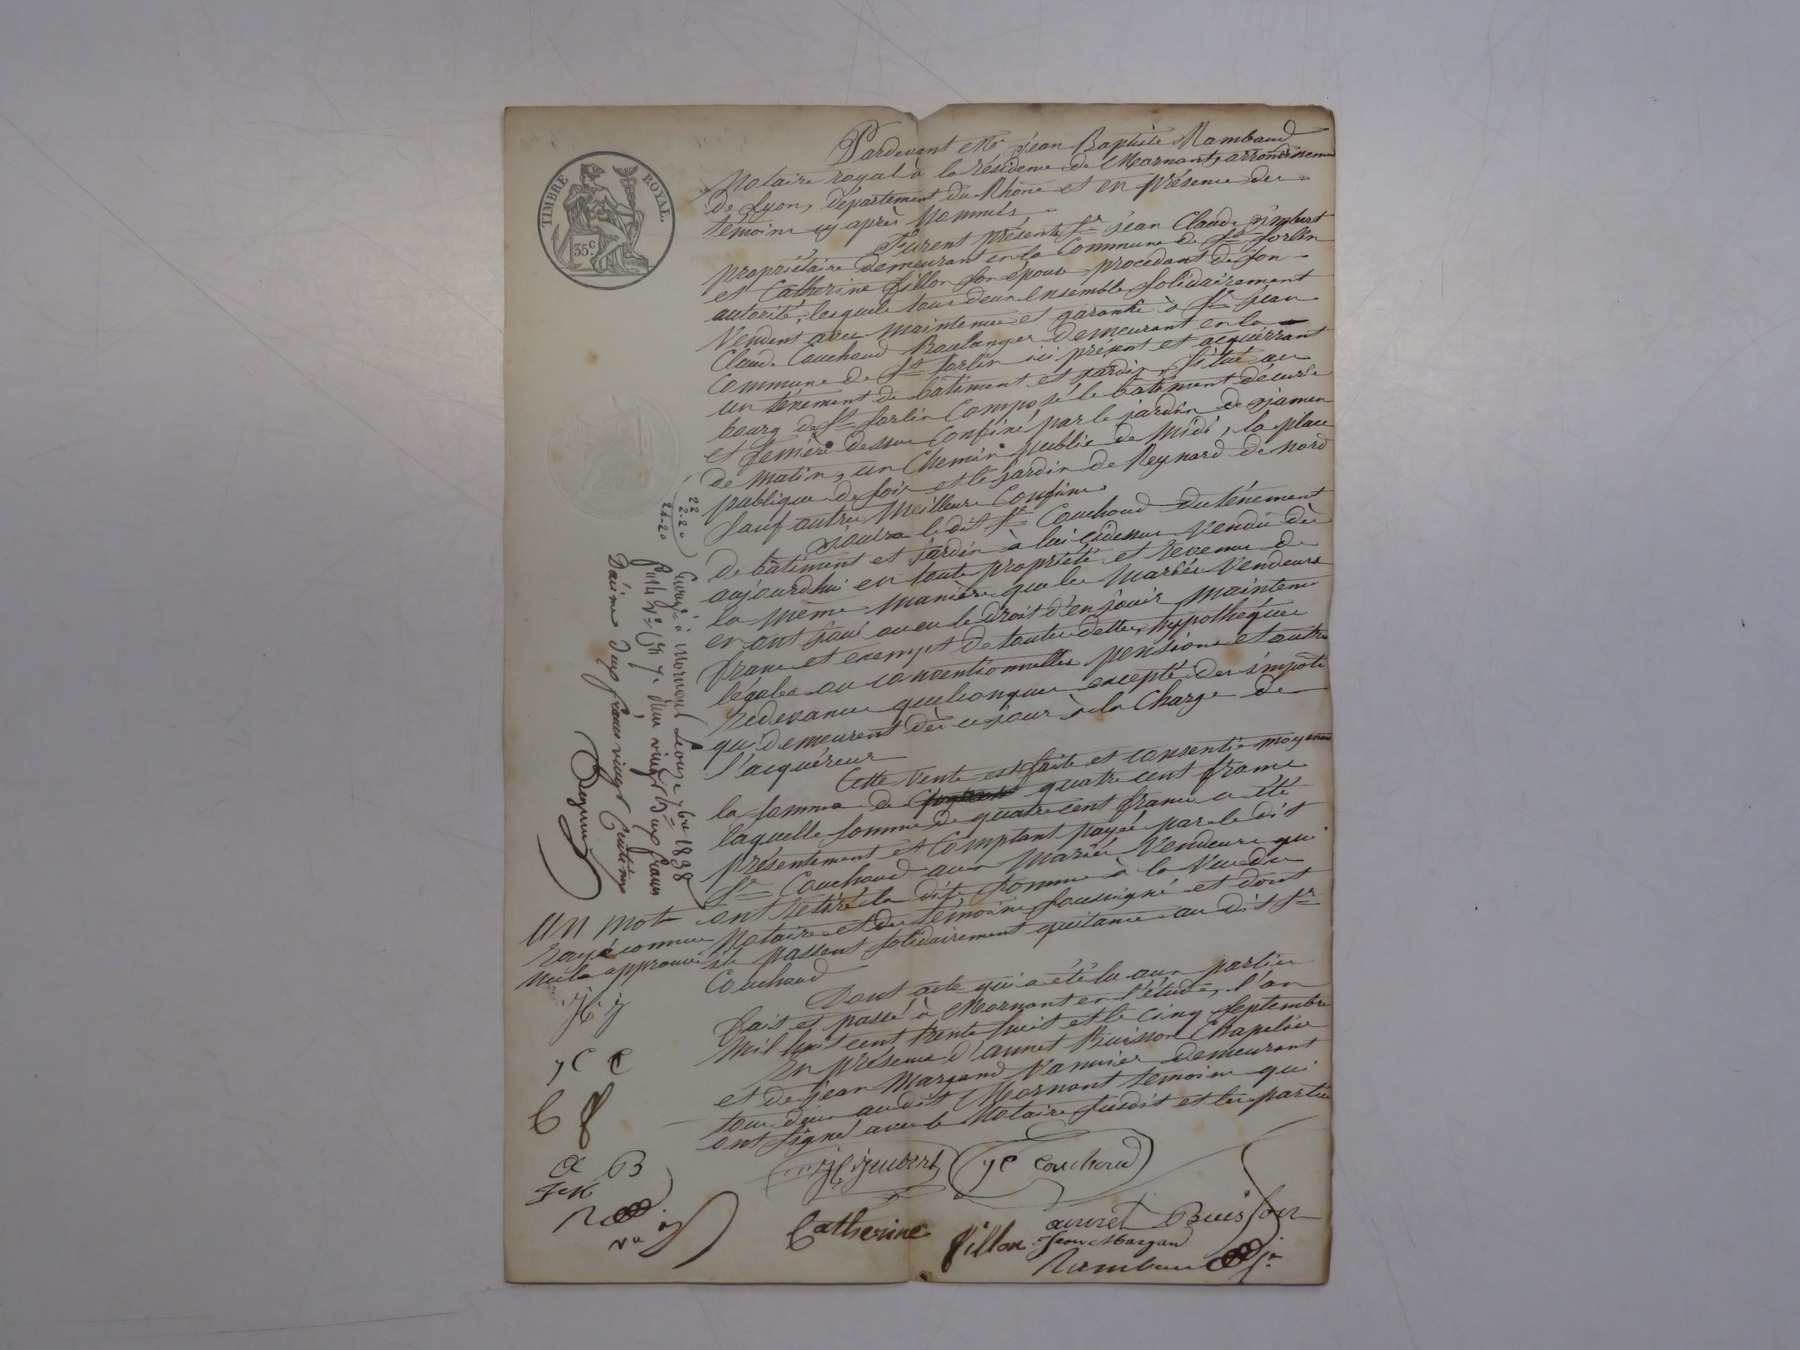 TIMBRE ROYAL.
35 c.
Pardevant Me jean Baptiste Rambaud
Notaire royal à la résidence de Mornant, arrondissement
de Lyon, département du Rhône et en présence des
témoins cy après nommés
Furent présents Sr jean Claude jimbert
propriétaire demeurant en la Commune de St Sorlin
et Catherine fillon son épouse procédant de son
autorité, lesquels tous deux ensemble solidairement
Vendent avec maintenue et garantie à Sr jean
Claude Couchoud Boulanger demeurant en la
Commune de St Sorlin ici présent et acquérrant
un tènement de bâtiment et jardin, situé au
bourg de St Sorlin Composé le bâtiment d'écurie
et fenière dessus Confiné par le jardin de
de matin, un Chemin public de midi, la place
publique de soir et le jardin de Reynard de nord
Sauf autres meilleurs Confins
jouira le dit Sr Couchoud du tènement
de bâtiment et jardin à lui cidessus vendu dès
aujourdhui en toute propriété et revenus de
la même manière que les mariés vendeurs
en ont joui ou eu le droit d'en jouir maintenu
franc et exempt de toutes dettes, hypothèques
légales ou conventionnelles pensions et autres
redevances quelconques excepté des impots
qui demeurent dès ce jour à la Charge de
l'acquéreur
Cette vente est faite et consentie moyenant
la somme de quatre cent francs
laquelle somme de quatre cent francs a été
présentement et Comptant payée par le dit
Sr Couchoud aux mariés Vendeurs qui
ont retiré la dite somme à la vue du
Notaire et des témoins soussigné et dont
ils passent solidairement quitance au dit Sr
Couchoud
Dont acte qui a été lu aux parties
fait et passé à Mornant en l'étude, l'an
mil huit cent trente huit et le cinq septembre
En présence d'annet Buisson Chapelier
et de jean Margand Vannier demeurant
tous deux au dit Mornant temoins qui
ont signé avec le Notaire susdit et les parties
22
2.20
24.20
à Mornant Le onze 7bre 1838
vingt deux francs
Dixième deux francs vingt Centimes
UN mot
rayé comme
nul approuvé
jC j
jC C
C f
a B
J M
jC jimbert
jC Couchoud
Catherine fillon
annet Buisson
Jean Margand
Rambaud